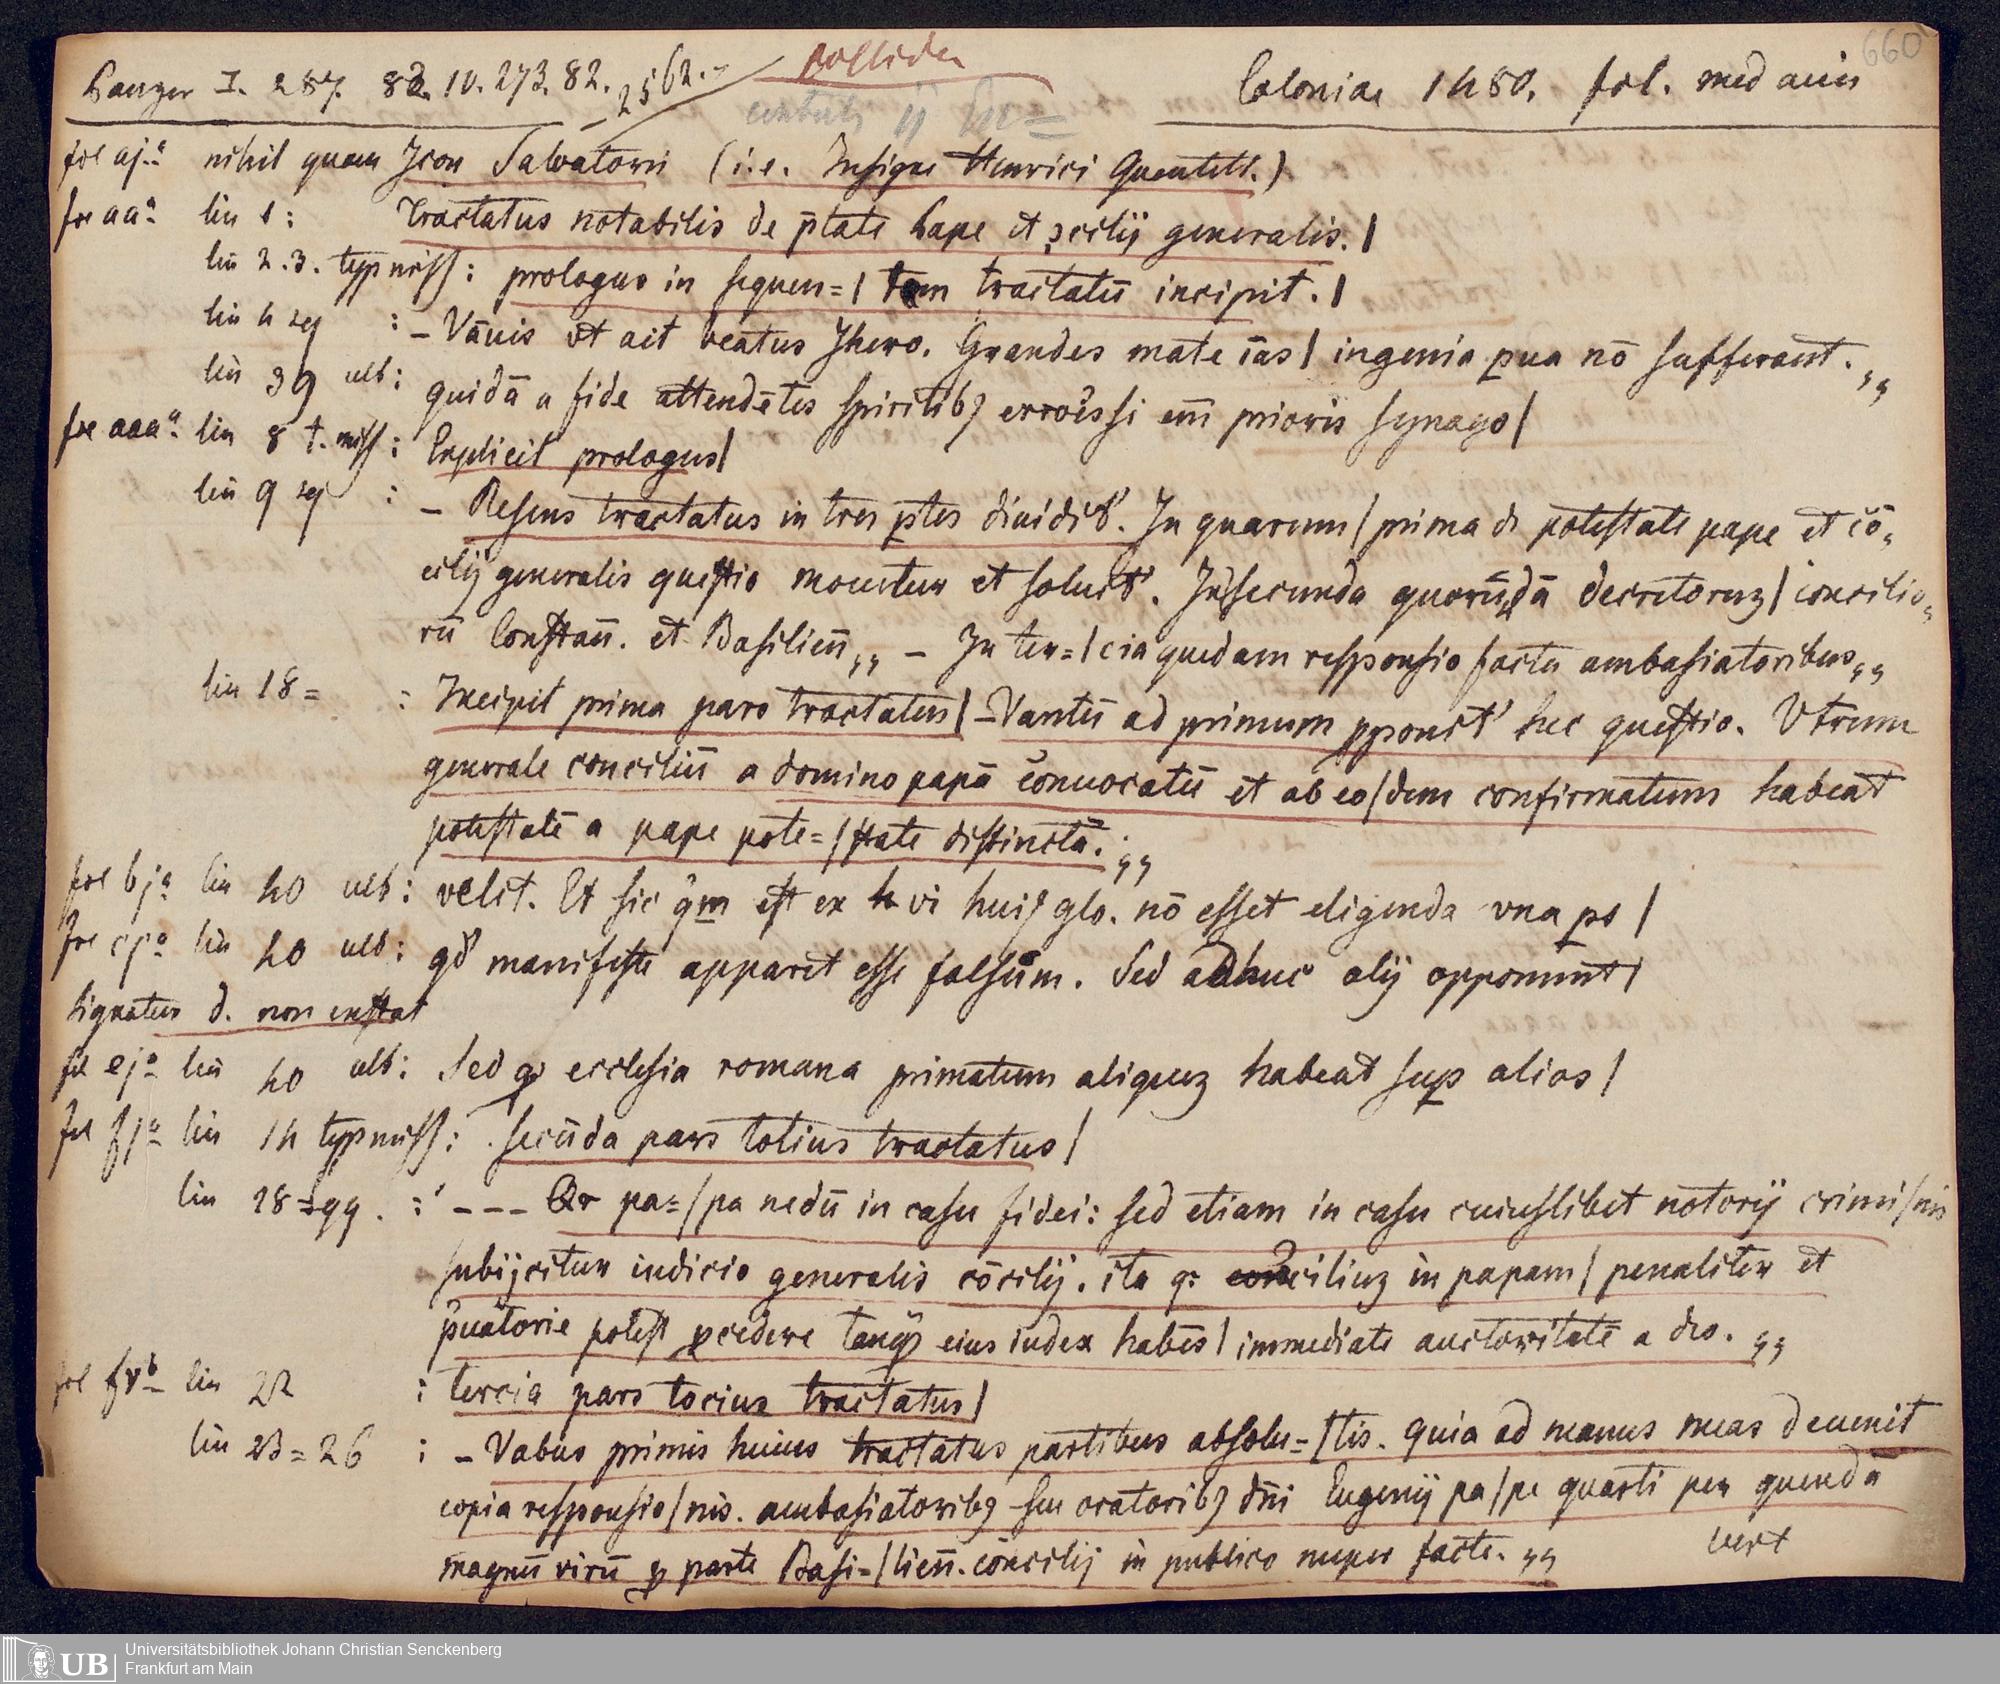 660
Panzer I. 287. 82. IV. 273. 82. 2562.
Coloniae 1480. fol. med
fol aj.a nihil quam Icon Salvatoris (i.e. Insigne Henrici Quentell.)
fol aa.a lin 1: Tractatus notabilis de ptāte Pape et ꝯcilij generalis. |
lin 2.3. typ miss: prologus in sequen= | tem tractatū incipit. |
lin 4 sq : – Vāuis vt ait beatus Jhero. Grandes mate īas | ingenia pua nō sufferant. „
lin 39 ult: quidā a fide attendētes spiritibꝫ erroēs si em̄ prioris synago |
fol aaa.a lin 8 t. miss: Explicit prologus |
lin 9 sq : – Resens tractatus in tres ptes diuidit'. In quarum | prima de potestate pape et cō=
cilij generalis questio mouetur et soluit'. In secunda quorūdā decretoruꝫ | concilio=
rū Constan̄. et Basilien̄ „ – In ter= | cia quedam responsio facta ambasiatoribus „
lin 18 = : Incipit prima pars tractatus | – Vantū ad primum pponit' hec questio. Vtrum
generale conciliū a domino papā conuocatū et ab eo | dem confirmatum habeat
potestatē a pape pote= | state distinctā. „
fol bj.a lin 40 ult: velit. Et sic q̄m est ex vi huiꝰ glo. nō esset eligenda vna ps |
fol cj.a lin 40 ult: qd' manifeste apparet esse falsum. Sed adhuc alij opponunt |
Signatura d. non exstat
fol ej.a lin 40 ult: Sed ꝙ ecclesia romana primatum aliqueꝫ habeat sup alias |
fol fj.a lin 14 typ miss: Secūda pars totius tractatus |
lin 18 = qq. : – – – Qr pa= | pa nedū in casu fidei: sed etiam in casu cuiuslibet notorij crimi | nis
subijcitur iudicio generalis cōcilij. ita ꝙ conciliuꝫ in papam | penaliter et
puātorie potest pcedere tanqꝫ eius iudex habēs | immediate auctoritatē a deo. „
fol fv.b lin 22 : tercia pars tocius tractatus |
lin 23=26 : – Vabus primis huius tractatus partibus absolu= | tis. quia ad manus meas deuenit
copia responsio | nis. ambasiatoribꝫ seu oratoribꝫ dn̄i Eugenij pa | pe quarti per quendā
magnū virū ꝓ parte Basi= | lien̄. concilij in publico nuper facte. „
vert
Universitätsbibliothek Johann Christian Senckenberg
UB
Frankfurt am Main